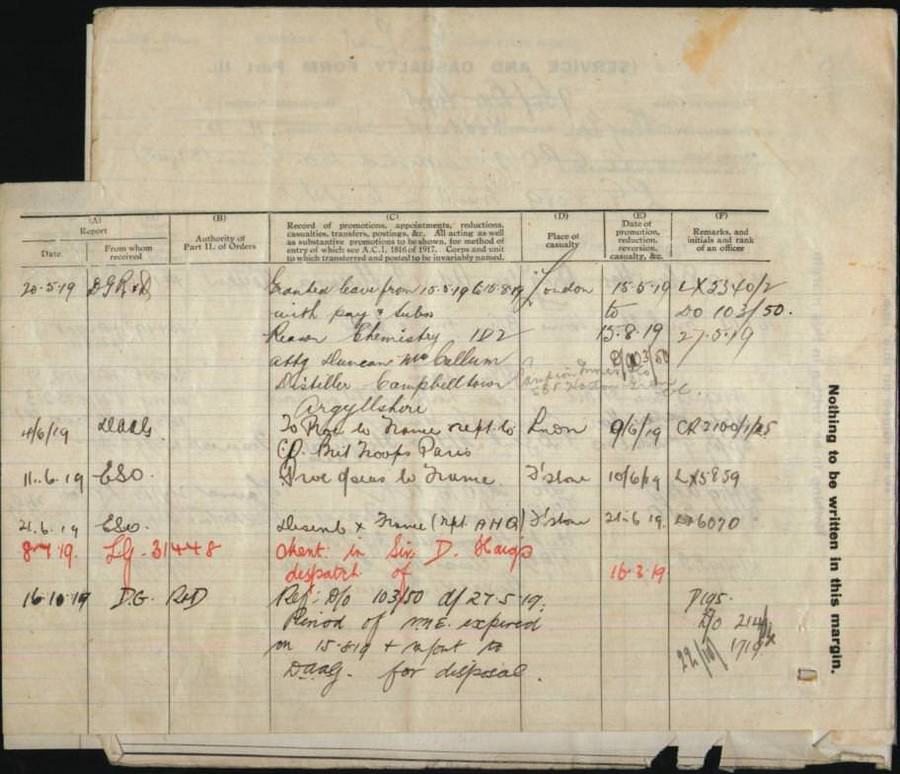 (SERVICE AND CASUALTY FORM Part II.
(A)
Report
Date.
From whom received
(B)
Authority of Part II. of Orders
(C)
Record of promotions, appointments, reductions,
casualties, transfers, postings, &c. All acting as well
as substantive promotions to be shown, for method of
entry of which see A.C.I. 1816 of 1917. Corps and unit
to which transferred and posted to be invariably named.
(D)
Place of casualty
(E)
Date of promotion, reduction, reversion, casualty, &c.
(F)
Remarks, and initials and rank of an officer
20.5.19 DGR&D Granted leave from 15.5.19 to 15.8.19 London 15.5.19 LX5340/2
with pay & subs to DO 103/50.
Reason Chemistry 1B2 15.8.19 27.5.19
attg Duncan McCallum
Distiller Campbelltown
Argyllshire
4/6/19 DAAG. To Proc to France rept to London 9/6/19 CR2100/1/25
GO. Brit Troops Paris
11.6.19 ESO. Proc O'seas to France. F'stone 10/6/19 LX5859
21.6.19 ESO. Disemb x France (rpt. AHQ) F'stone 21.6.19. 6070
8.7.19. LG. 31448 Ment. in Sir D. Haig's
despatch of 16.3.19
16.10.19 D.G. R&D Ref: D/O 103/50 d/ 27.5.19.
Period of expired
on 15.8.19 & report to
DAAG. for disposal.
D/O 214/
22/10/1919
Nothing to be written in this margin.